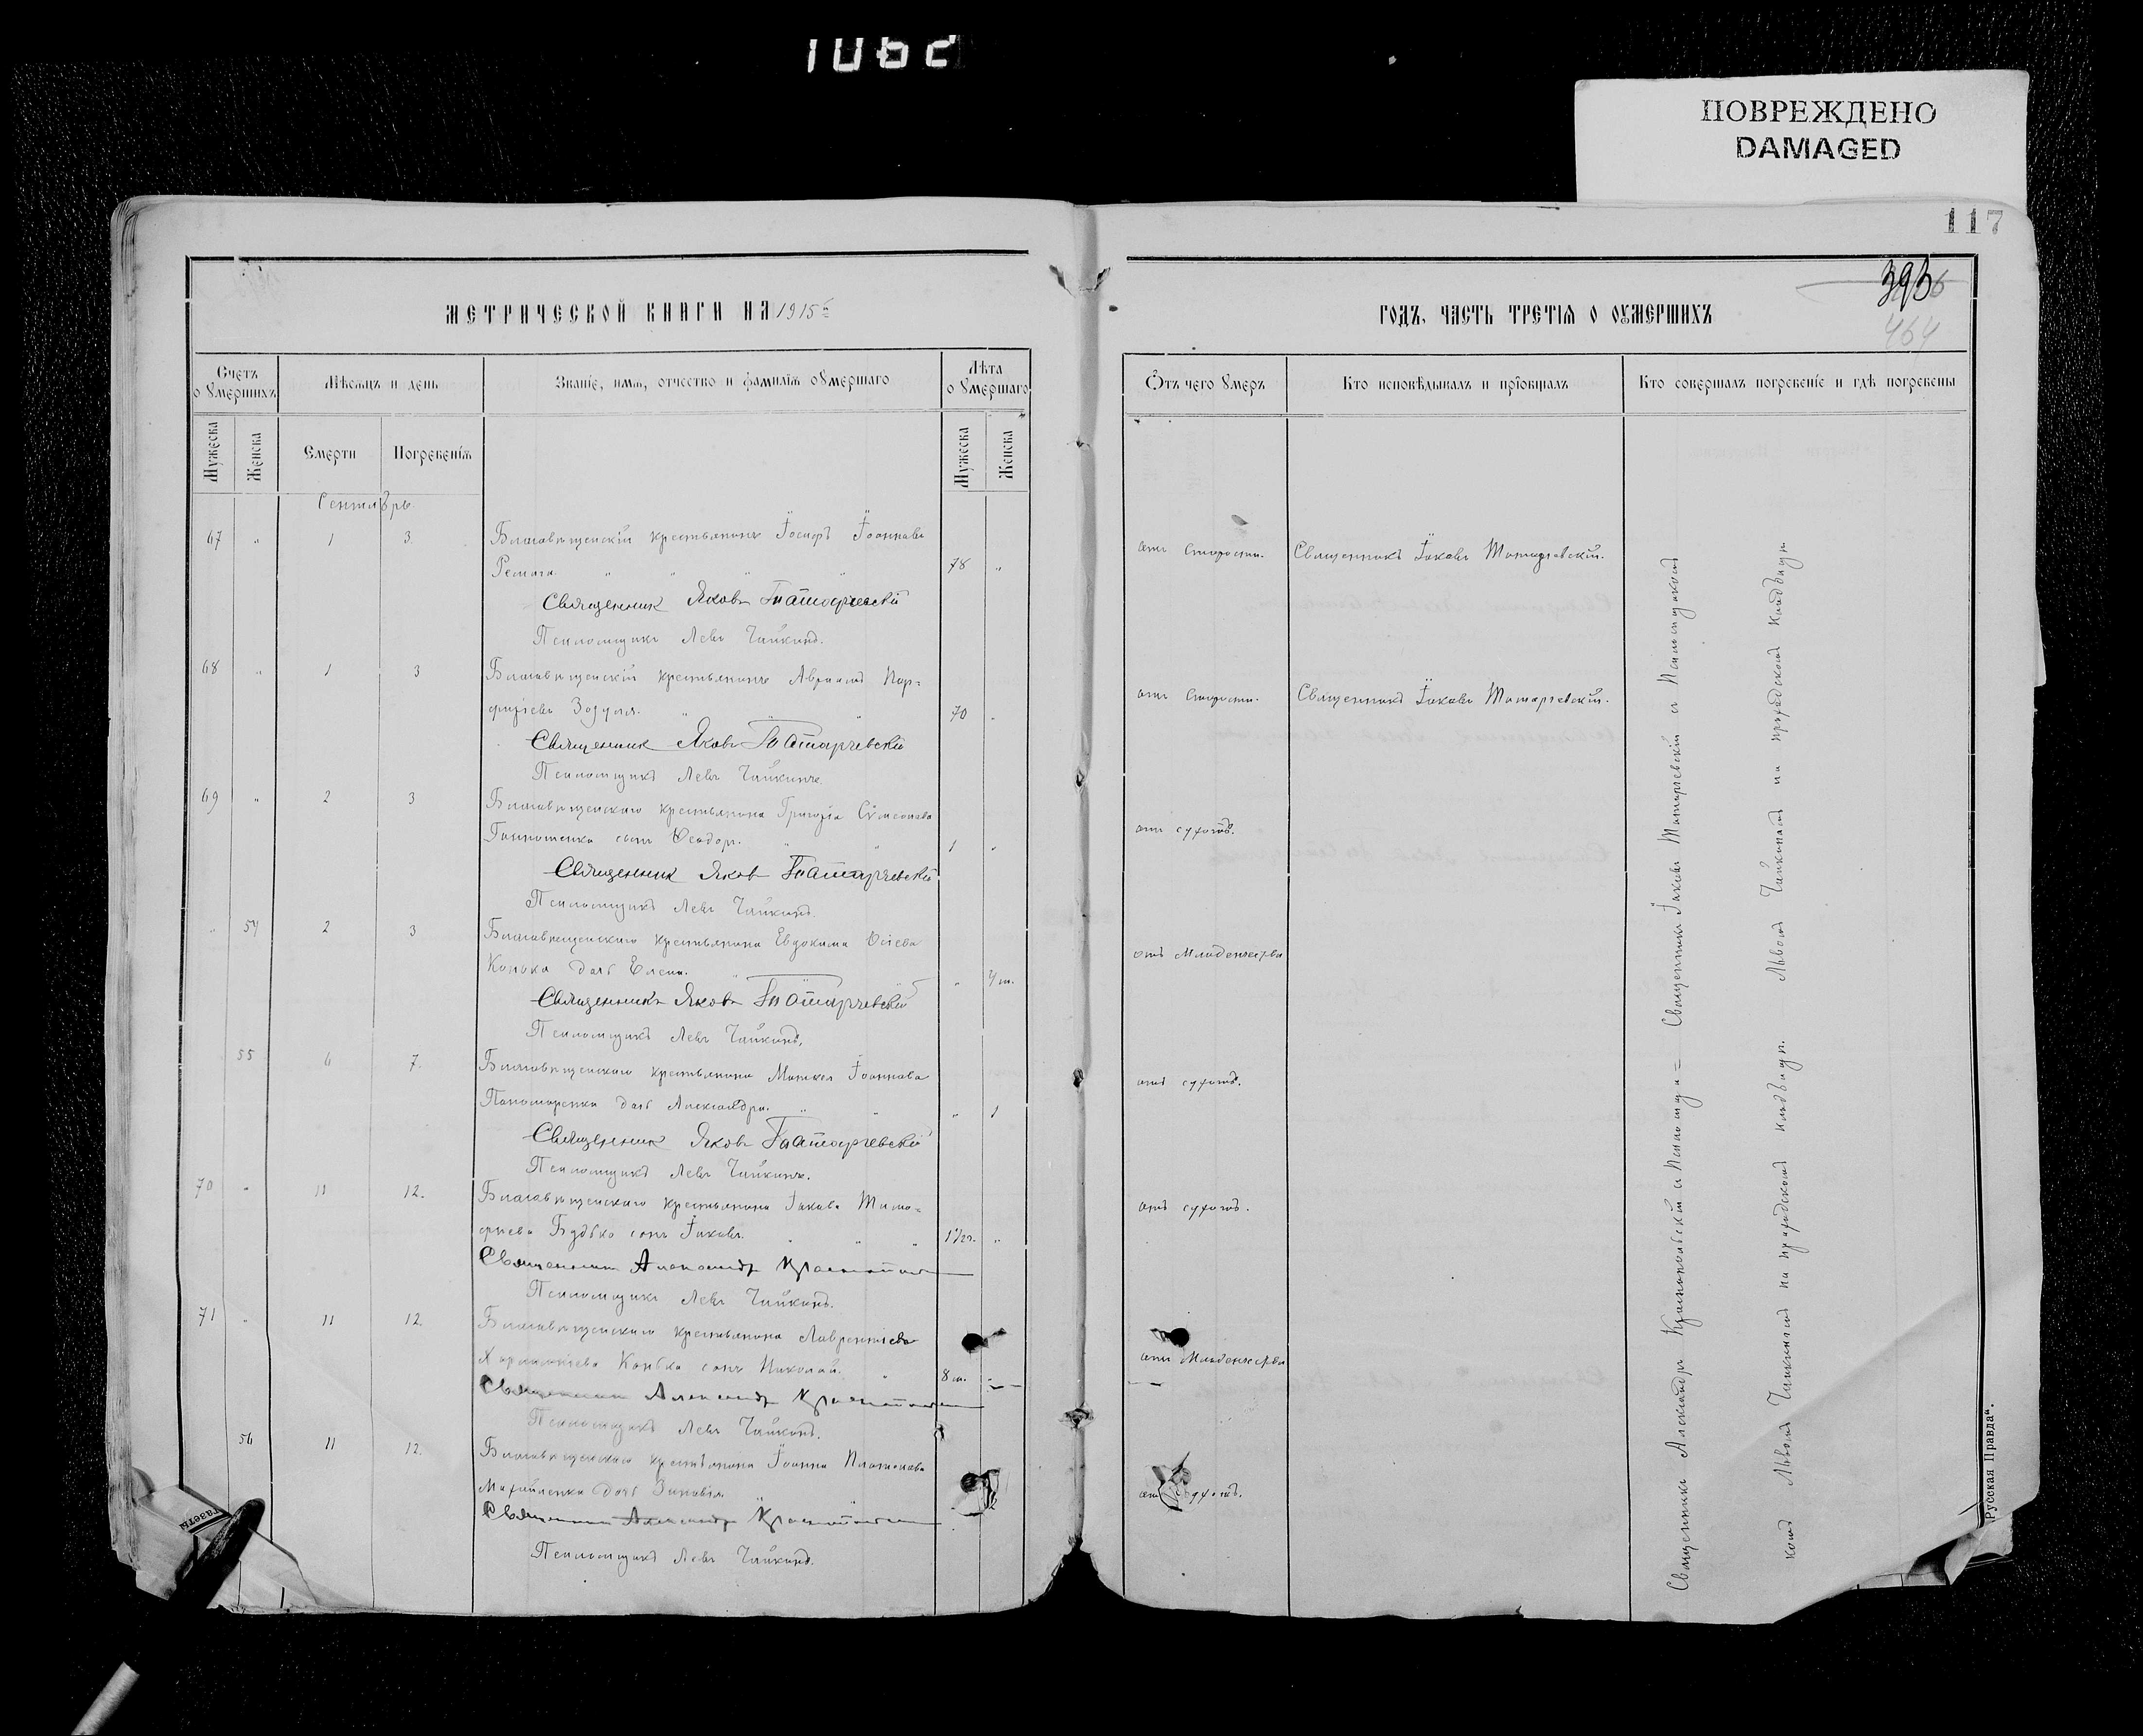 1062
ПОВРЕЖДЕНО
DAMAGED
117
393
464
МЕТРИЧЕСКОЙ КНИГИ НА 1915 г.
ГОДЪ, ЧАСТЬ ТРЕТІЯ О ОУМЕРШИХЪ
Счетъ оумершихъ
Мѣсяцъ и день
Званіе, имя, отчество и фамилія оумершаго
Лѣта оумершаго
Отъ чего умеръ
Кто исповѣдывалъ и пріобщалъ
Кто совершалъ погребеніе и гдѣ погребены
Мужеска
Женска
Смерти
Погребенія
Мужеска
Женска
Сентябрь
67 " 1 3 Благовѣщенскій крестьянинъ Іосифъ Іоанновъ
78 " отъ старости. Священникъ Іаковъ Татарчевскій.
Священник Яковъ Татарчевскій
Псаломщикъ Левъ Чайкинъ.
68 " 1 3 Благовѣщенскій крестьянинъ Авраамъ Пор-
фиріевъ Зозуля. 70 " отъ старости. Священникъ Іаковъ Татарчевскій.
Священник Яковъ Татарчевскій
Псаломщикъ Левъ Чайкинъ.
69 " 2 3 Благовѣщенскаго крестьянина Григорія Сѵмеонова
сынъ Ѳеодоръ. 1 " отъ сухотъ.
Священник Яковъ Татарчевскій
Псаломщикъ Левъ Чайкинъ.
" 54 2 3 Благовѣщенскаго крестьянина Евдокима
Конька дочь Елена. " 4 м. отъ младенчества
Священникъ Яковъ Татарчевскій
Псаломщикъ Левъ Чайкинъ.
55 6 7. Благовѣщенскаго крестьянина Матѳея Іоаннова
Пономаренка дочь Александра. " 1 отъ сухотъ.
Священник Яковъ Татарчевскій
Псаломщикъ Левъ Чайкинъ.
70 " 11 12. Благовѣщенскаго крестьянина Іакова Тимо-
фіева Будько сынъ Іаковъ. 1½ г. " отъ сухотъ.
Священникъ Александръ Краснопольскій
Псаломщикъ Левъ Чайкинъ.
71 " 11 12. Благовѣщенскаго крестьянина Лаврентіева
Харлампіева Конька сынъ Николай. 8 м. " отъ младенчества
Священникъ Александръ Краснопольскій
Псаломщикъ Левъ Чайкинъ.
56 11 12. Благовѣщенскаго крестьянина Іоанна Платонова
Михайленка дочь Зиновія. сухотъ.
Священникъ Александръ Краснопольскій
Псаломщикъ Левъ Чайкинъ.
Священникъ Александръ Краснопольскій и Псаломщ- = Священникъ Іаковъ Татарчевскій съ Псаломщикомъ
комъ Львомъ Чайкинымъ на приходскомъ кладбищѣ. Львомъ Чайкинымъ на приходскомъ кладбищѣ
Русская Правда".
газеты